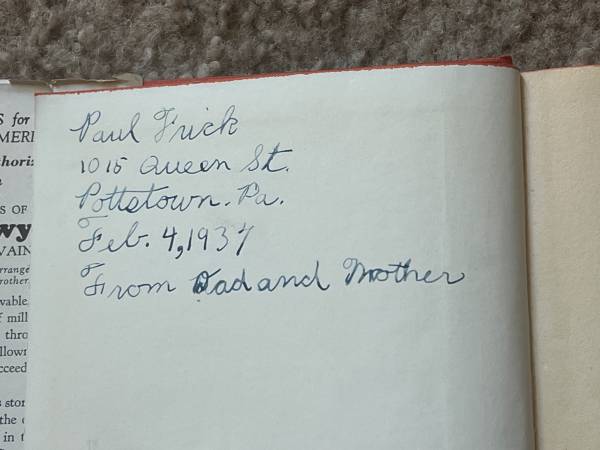 Paul Frick
1015 Queen St.
Pottstown. Pa.
Feb. 4, 1937
From Dad and Mother
S for
MERI
thoriz
S OF
wy
WAIN
rrange
rother,
wable.
f mill
thro
llown
cceed
s stor
the
in t